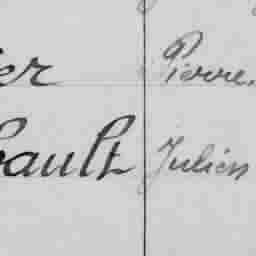 er Pierre.
ault Julien